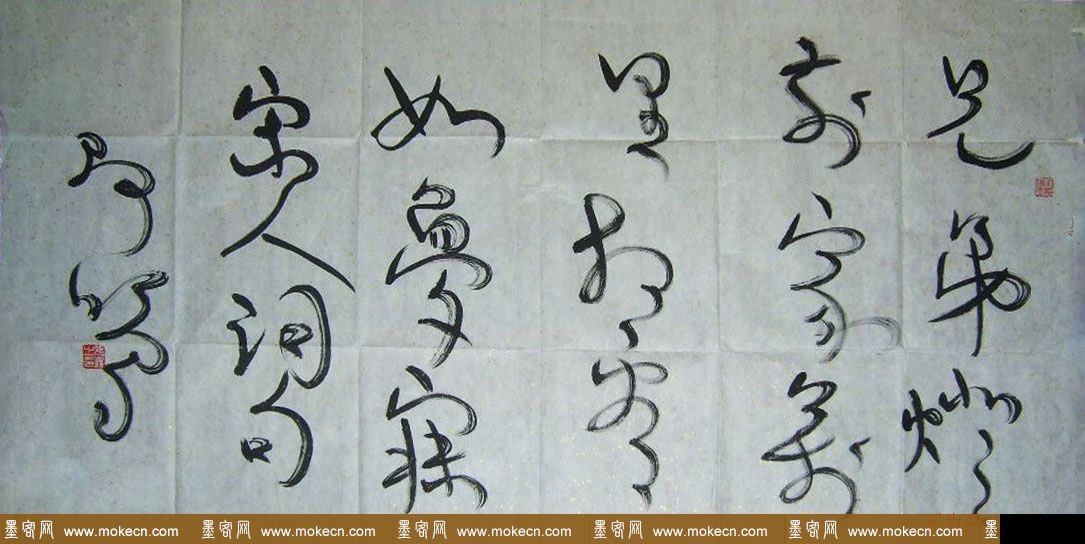 兄弟燈
前家萬
里相看
如夢寐
宋人词句
墨客网 www.mokecn.com 墨客网 www.mokecn.com 墨客网 www.mokecn.com 墨客网 www.mokecn.com 墨客网 www.mokecn.com 墨